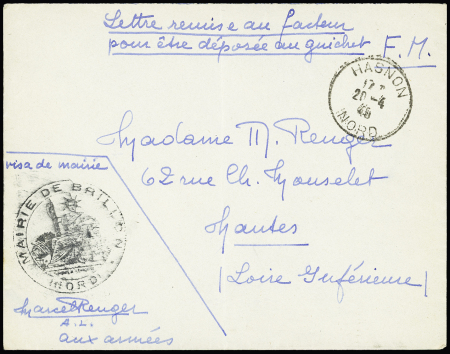 Lettre remise au facteur
pour être déposée au guichet F.M.
HASNON
20-4
NORD
Madame M. Renger
62 rue Ch. Monselet
Nantes
(Loire Inférieure)
visa de mairie
MAIRIE DE BRILLON
(NORD)
Marcel Renger
A.L.
aux armées